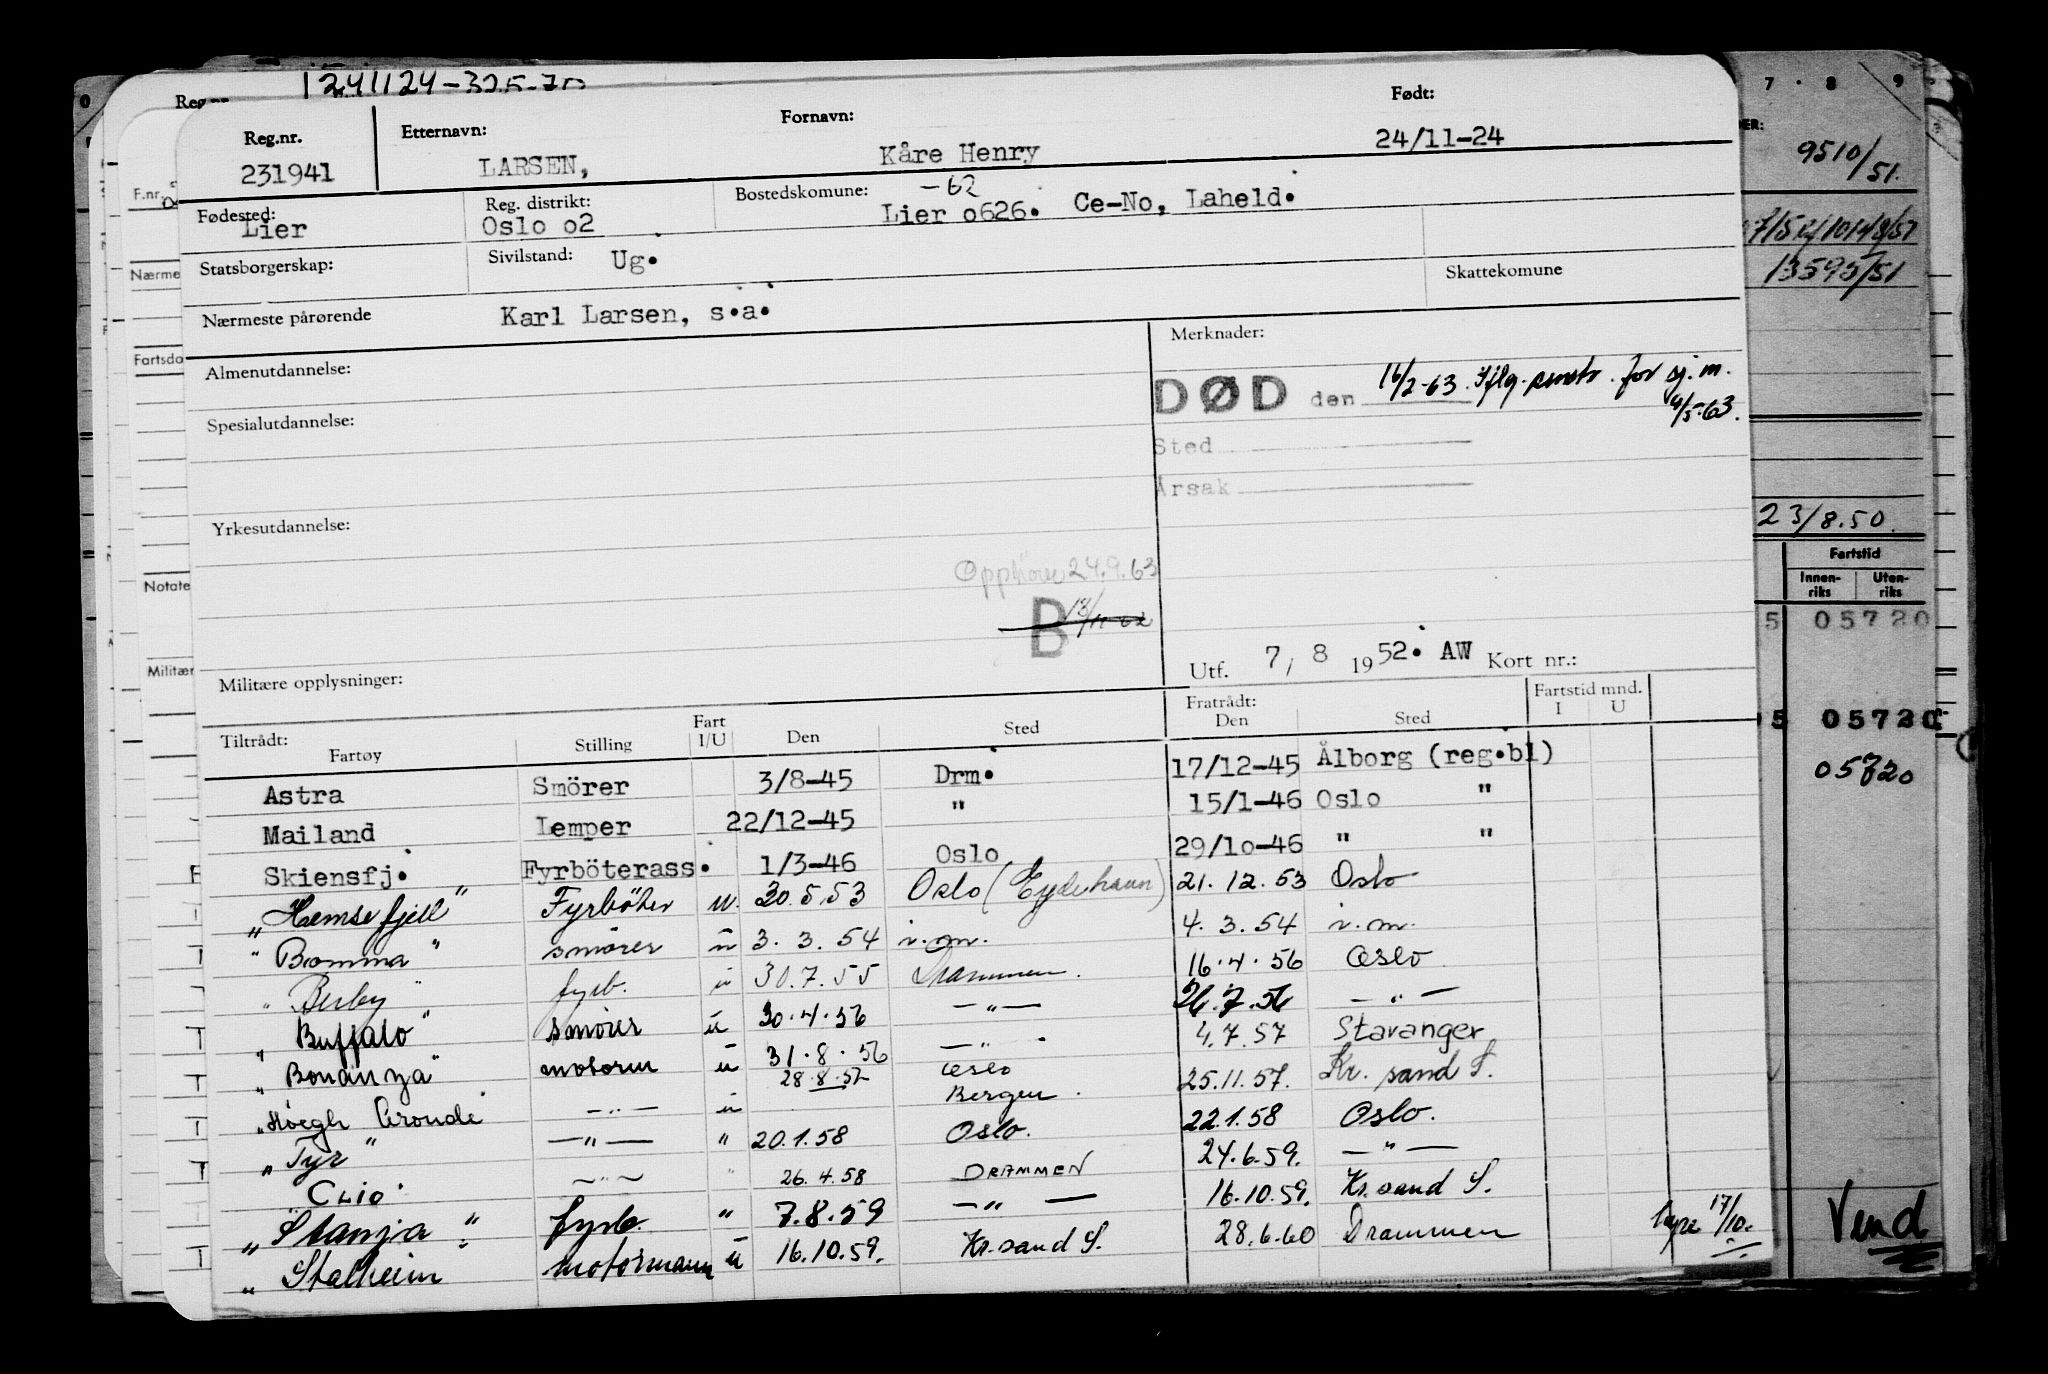 Reg.nr. 1241124-325-70
Reg.nr. Etternavn: Fornavn: Født:
231941 LARSEN, Kåre Henry 24/11-24
Fødested: Reg. distrikt: Bostedskomune: -62
Lier Oslo o2 Lier o626. Ce-No, Laheld.
Statsborgerskap: Sivilstand: Ug. Skattekomune
Nærmeste pårørende Karl Larsen, s.a.
Almenutdannelse: Merknader:
DØD den 16/2-63. Iflg. for sj.m.
4/5-63.
Spesialutdannelse: Sted
Årsak
Yrkesutdannelse:
Opphører 24.9.63
B 13/11-62
Militære opplysninger: Utf. 7/8 1952. AW Kort nr.:
Tiltrådt: Fart Fratrådt: Fartstid mnd.
Fartøy Stilling I/U Den Sted Den Sted I U
Astra Smörer 3/8-45 Drm. 17/12-45 Ålborg (reg.bl)
Mailand Lemper 22/12-45 " 15/1-46 Oslo "
Skiensfj. Fyrböterass. 1/3-46 Oslo 29/10-46 " "
"Hemsefjell" Fyrbøter u. 30.5.53 Oslo (Eydehavn) 21.12.53 Oslo
"Bomma" smører u 3.3.54 i.m. 4.3.54 i.m.
"Besby" fyrb. u 30.7.55 Drammen. 16.4.56 Oslo
"Buffalo" smører u 30.4.56 —"— 26.7.56 —"—
"Bonanza" motorm u 31.8.56 —"— 4.7.57 Stavanger
28.8.57 Oslo
"Höegh Cronde" —"— u Bergen. 25.11.57. Kr. sand S.
"Tyr" —"— " 20.1.58 Oslo. 22.1.58 Oslo.
"Clio" —"— " 26.4.58 DRAMMEN 24.6.59. —"—
"Stanja" fyrb. " 7.8.59 —"— 16.10.59. Kr.sand S.
"Stalheim motormann u 16.10.59. Kr.sand S. 28.6.60 Drammen
17/10.
Vend
F.nr.
Nærme
Fartsdo
Notate
Militær
7 . 8 9
9510/51.
13595/51
23/8.50.
Fartstid
Innen-riks Uten-riks
5 05720
5 05720
05720